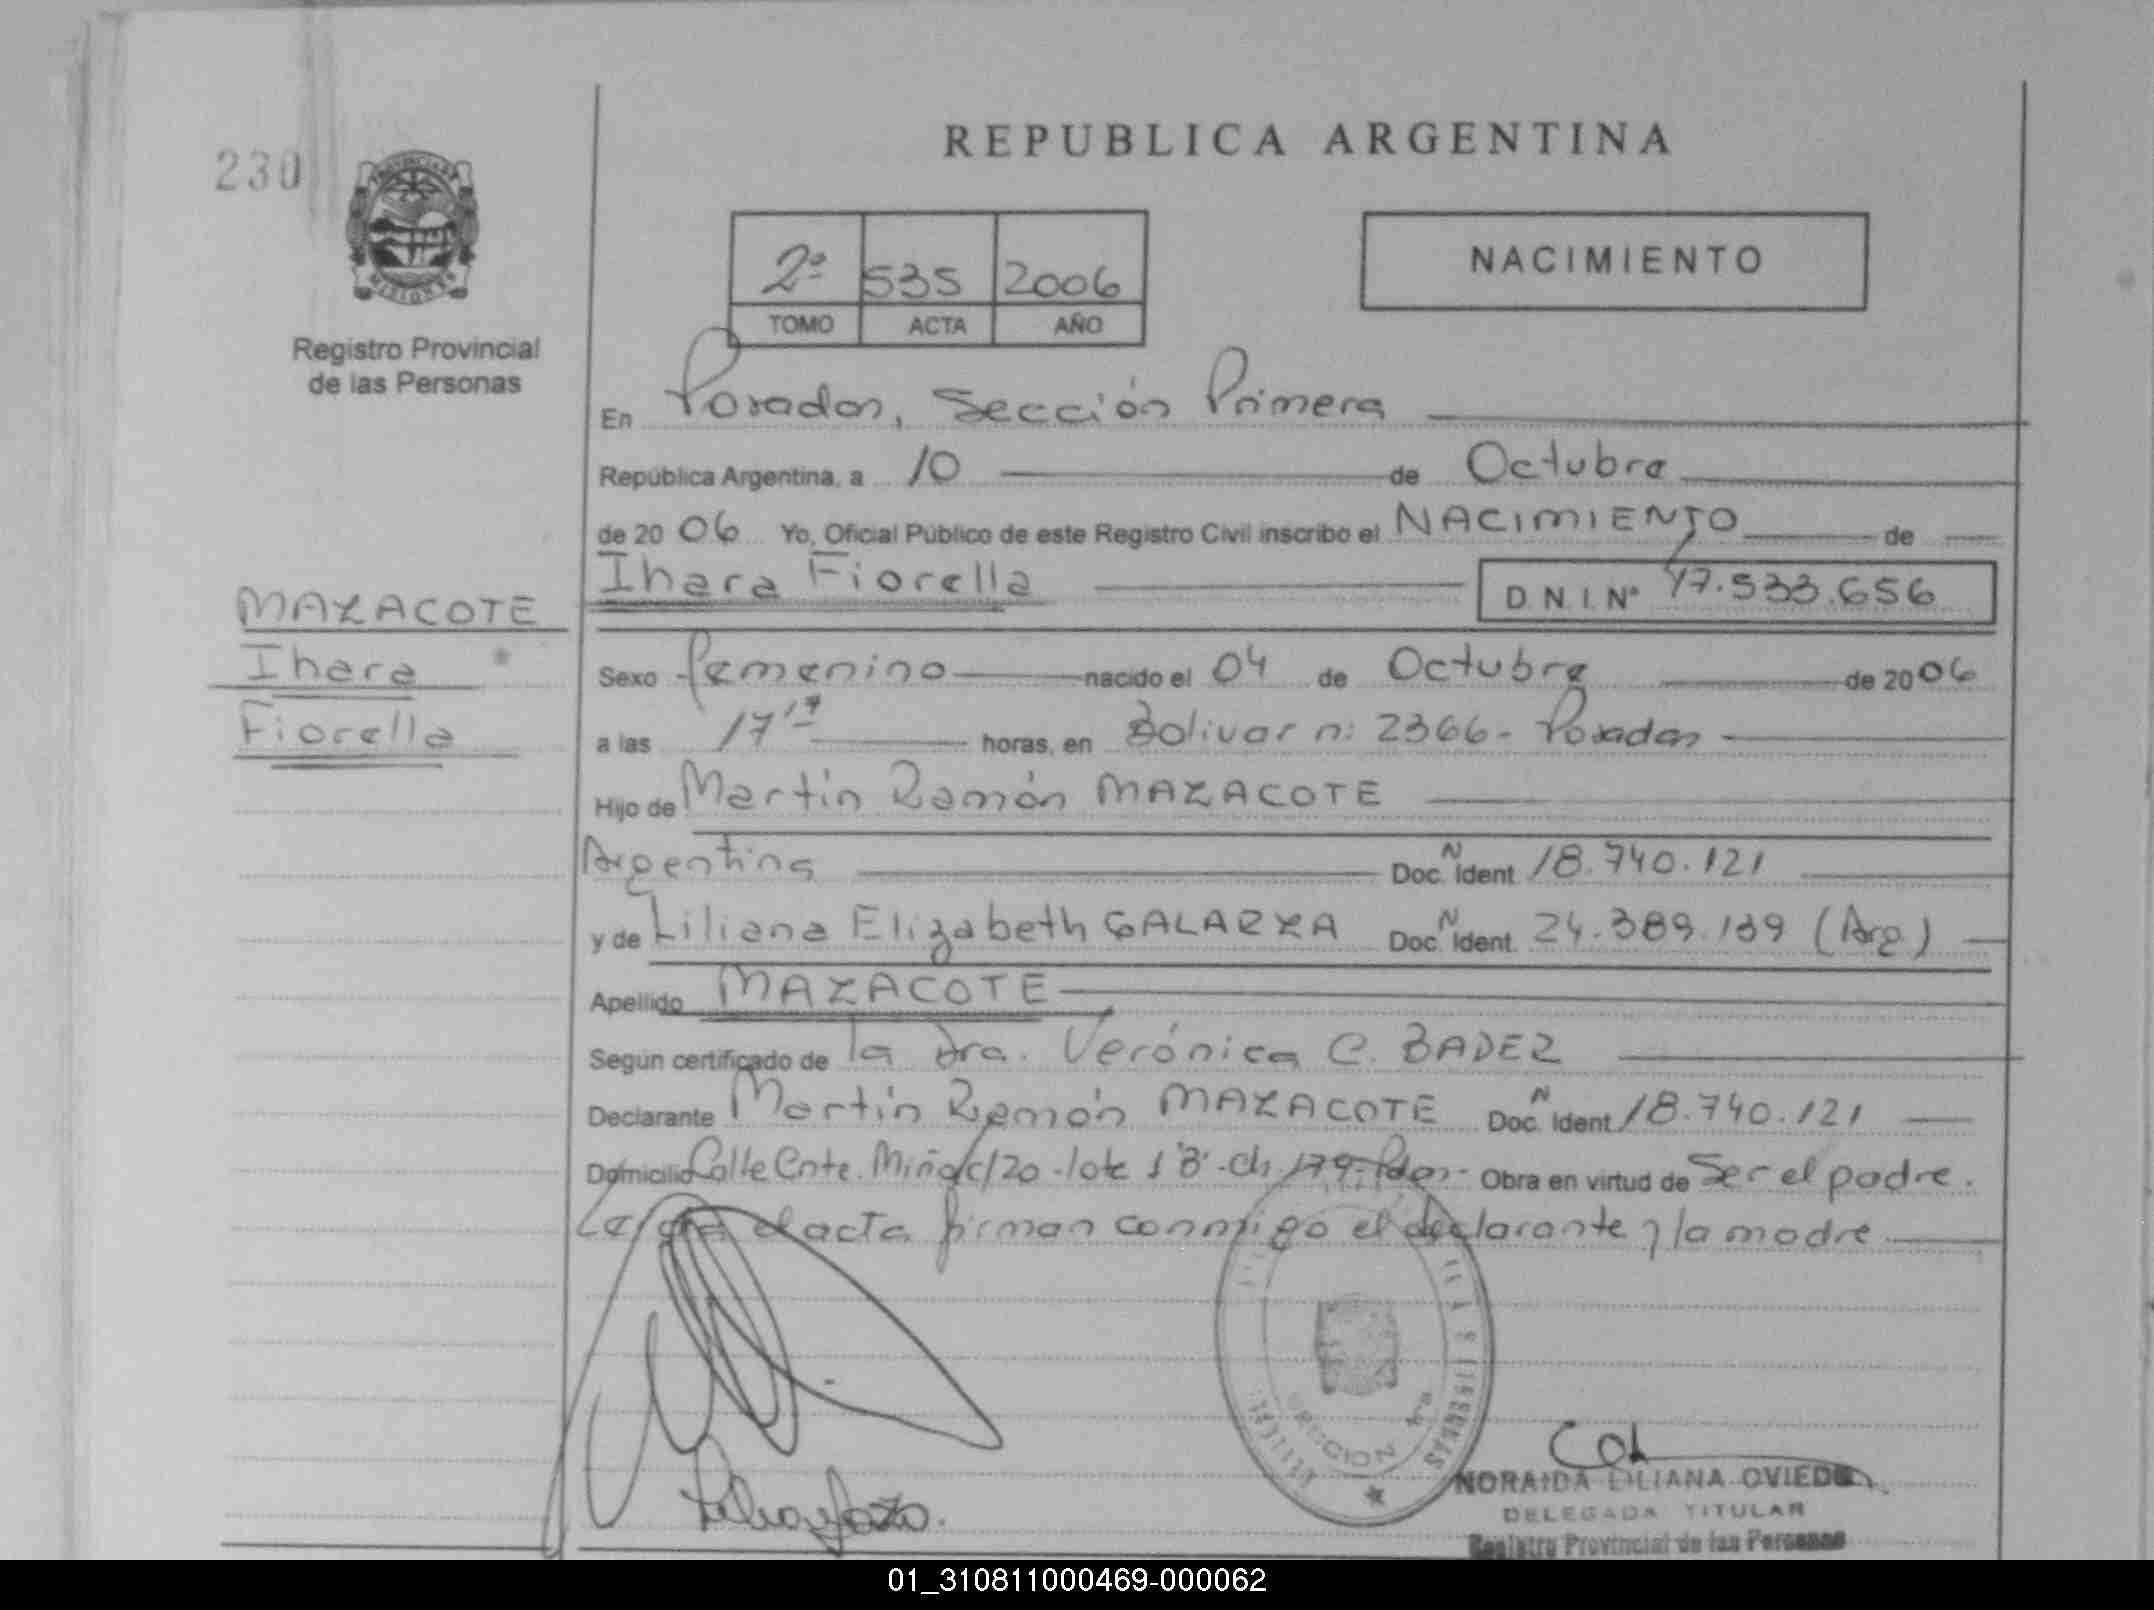 230
REPUBLICA ARGENTINA
2º 535 2006
TOMO ACTA AÑO
NACIMIENTO
PROVINCIA DE
MISIONES
Registro Provincial
de las Personas
En Posadas, Sección Primera
República Argentina, a 10 de Octubre
de 2006 Yo, Oficial Público de este Registro Civil inscribo el NACIMIENTO de
Ihara Fiorella D.N.I. Nº 47.533.656
MAZACOTE
Ihara
Fiorella
Sexo femenino nacido el 04 de Octubre de 2006
a las 17 17 horas, en Bolivar n: 2366 - Posadas
Hijo de Martín Ramón MAZACOTE
Argentina Doc. N Ident. 18.740.121
y de Liliana Elizabeth GALARZA Doc. N Ident. 24.389.139 (Arg)
Apellido MAZACOTE
Según certificado de la Dra. Verónica C. BADER
Declarante Martín Ramón MAZACOTE Doc. N Ident 18.740.121
Domicilio Calle Cnte. Miño c/20 - lote 1 "B" - ch 179 - Pdas - Obra en virtud de Ser el padre.
Leída el acta firman conmigo el declarante y la madre
SECCION 1ra
NORAIDA LILIANA OVIEDO
DELEGADA TITULAR
Registro Provincial de las Personas
01_310811000469-000062